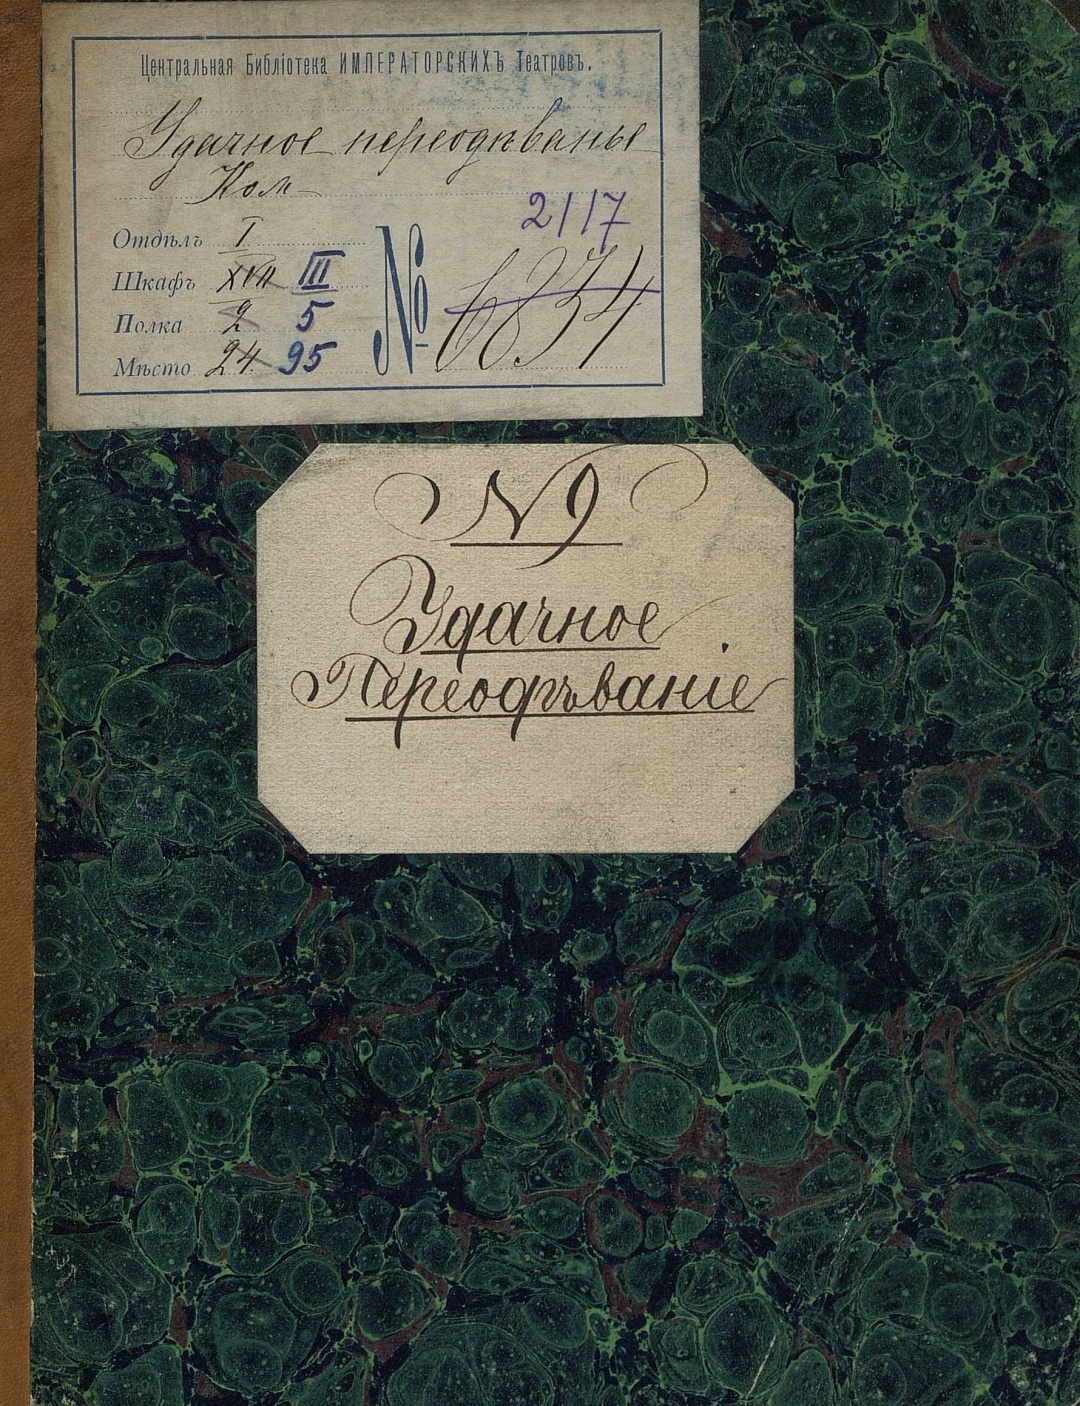 Центральная Библіотека ИМПЕРАТОРСКИХЪ Театровъ.
Удачное переодѣванье
Ком
2117
Отдѣлъ I
Шкафъ XVII III
Полка 2 5
Мѣсто 24 95
№ 6854
N 9
Удачное
Переодѣваніе